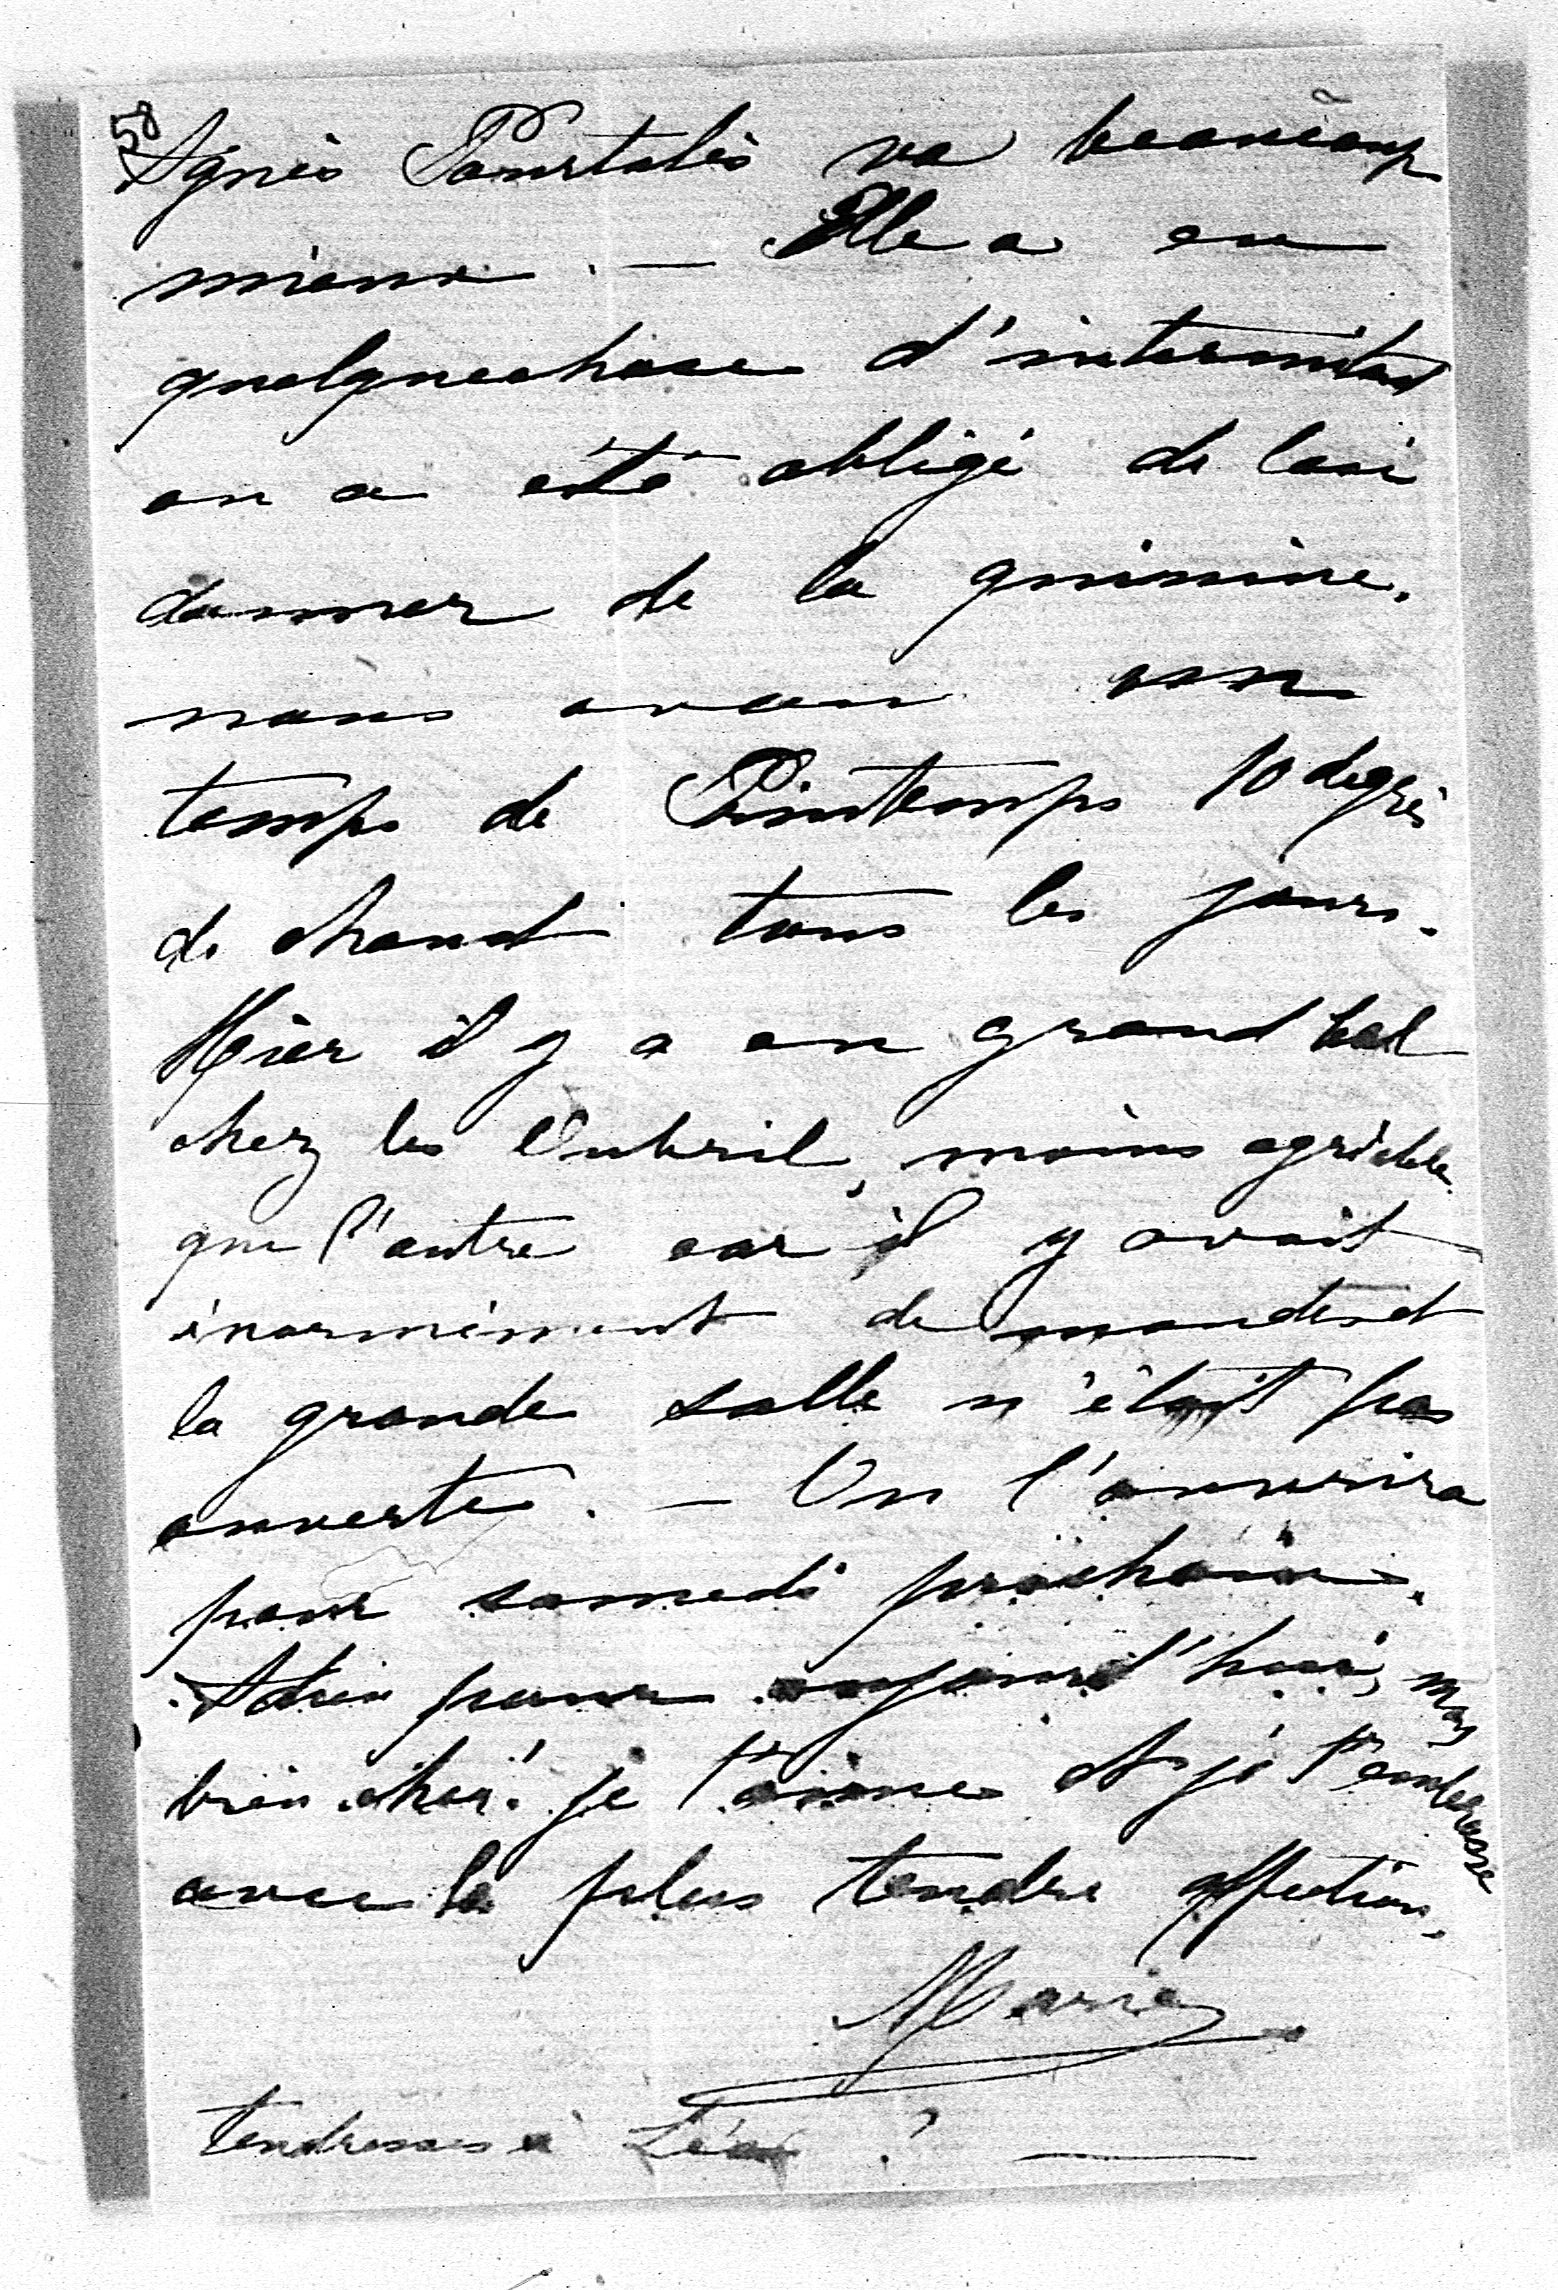 58
Agnès Pourtalès va beaucoup
mieux. — Elle a eu
quelquechose d'intermitent
on a été obligé de lui
donner de la quinine.
nous avon un
temps de Printemps 10 degrès
de chaud tous les jours.
Hier il y a eu grand bal
chez les Oubril, moins agréable
que l'autre car il y avait
énormément de monde et
la grande salle n'était pas
ouverte. — On l'ouvrira
pour samedi prochain.
Adieu pour aujourd'hui, mon
bien cher! je t'aime et je t'embrasse
avec la plus tendre affection.
Marie
tendresses à